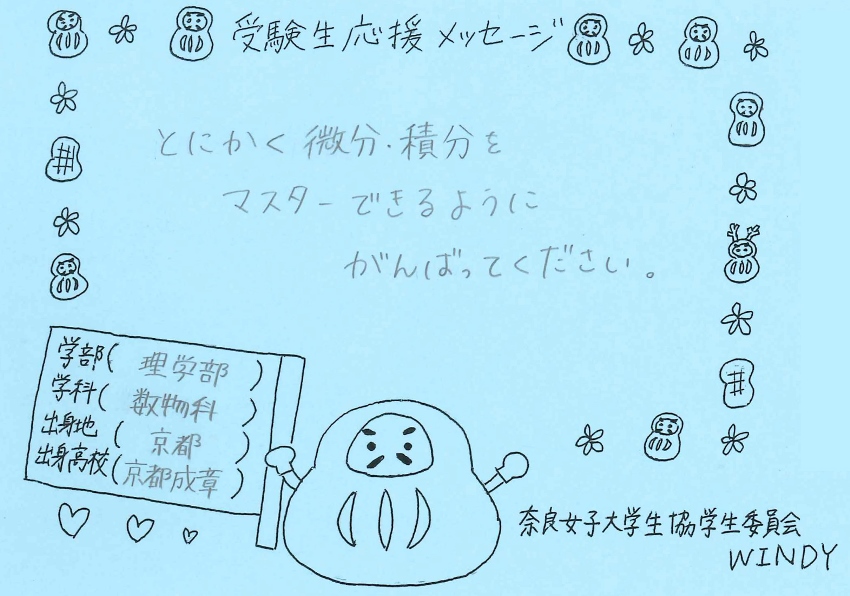 受験生応援メッセージ
とにかく微分・積分を
マスターできるように
がんばってください。
学部(理学部)
学科(数物科)
出身地(京都)
出身高校(京都成章)
奈良女子大学生協学生委員会
WINDY